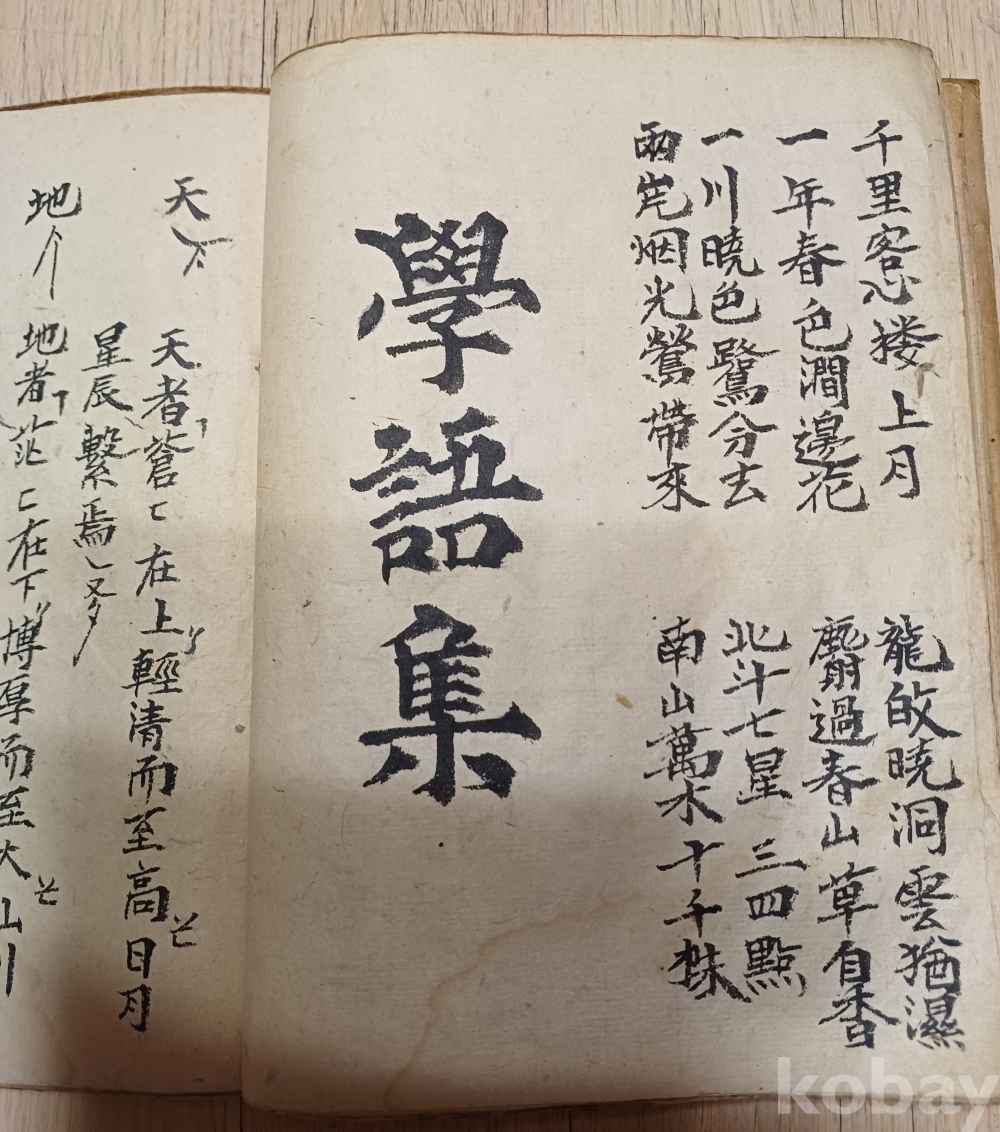 千里客心搂上月
一年春色澗邊花
一川曉色鷺分去
兩岸烟光鶯帶來
龍皈曉洞雲猶濕
麝過春山草自香
北斗七星三四點
南山萬水十千株
學語集
天
天者蒼〻在上輕清而至高日月
星辰繫焉
地
地者茫〻在下博厚而至大山川
kobay